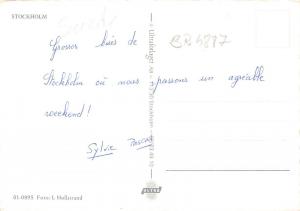 STOCKHOLM
Suède
CR6877
Grosses bises de
Stockholm où nous passons un agréable
weekend!
Sylvie Pascal
01-0895 Foto: L Hallstrand